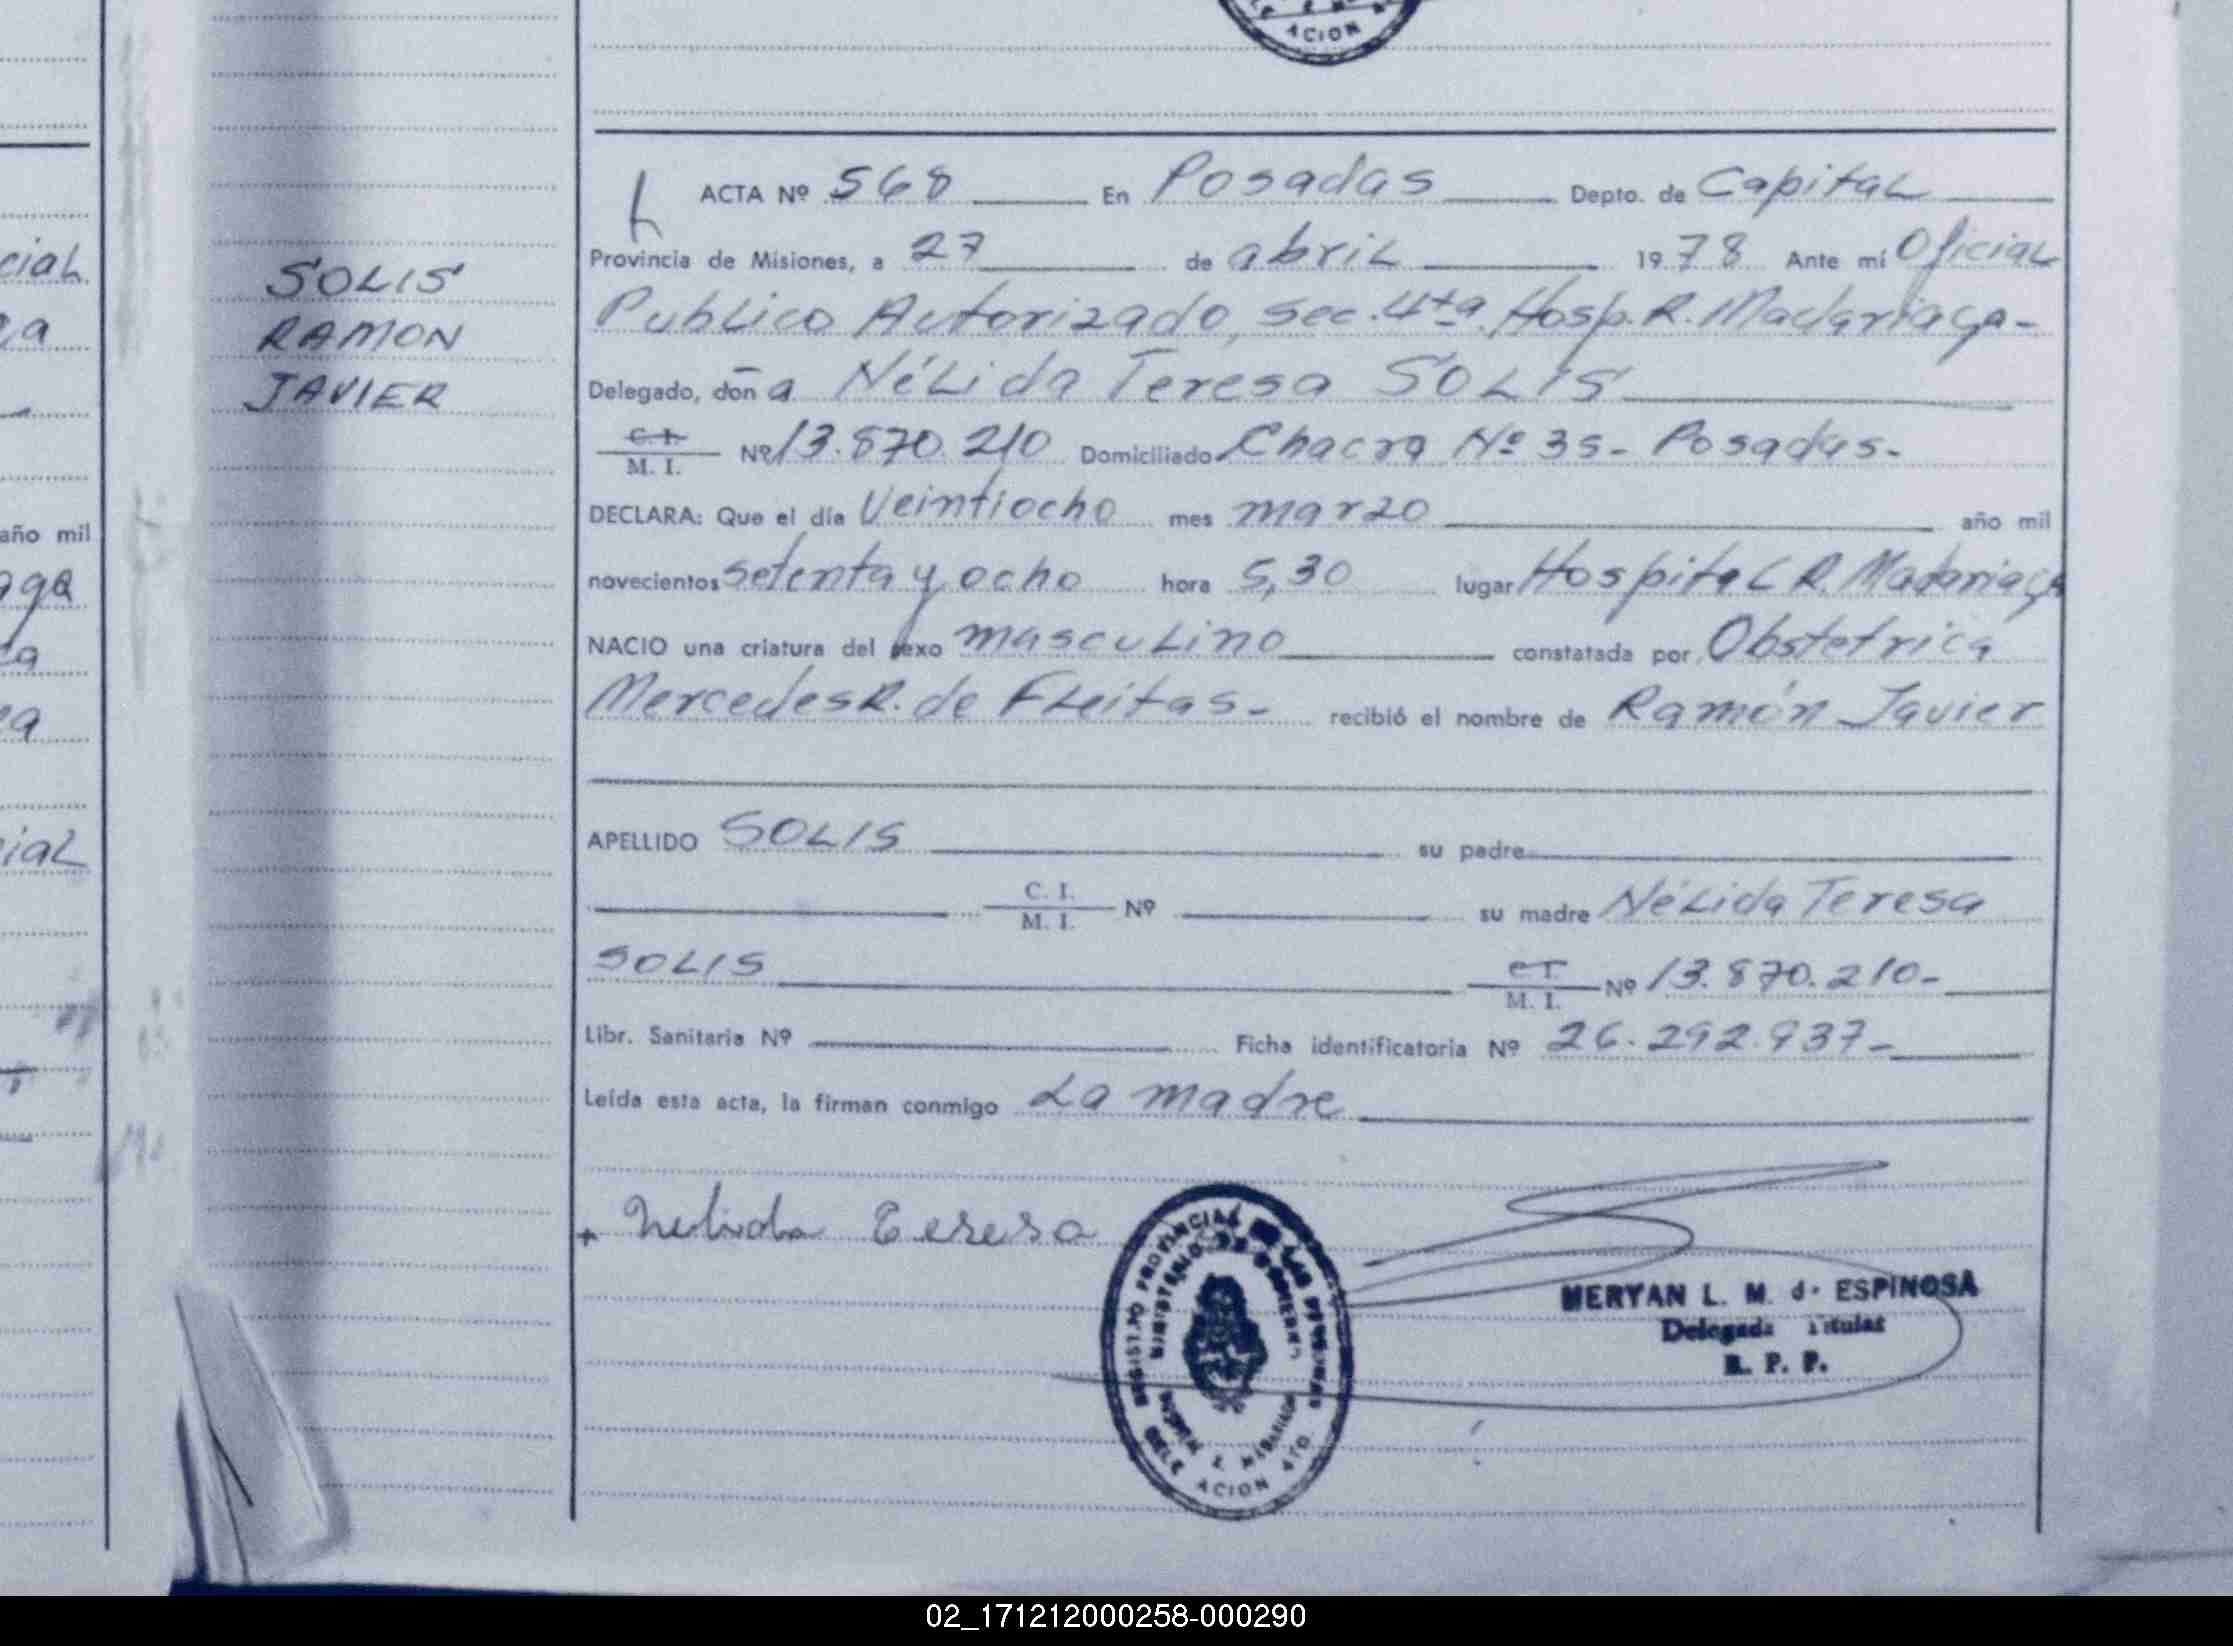 ACION
cial
ACTA Nº 568 En Posadas Depto. de Capital
Provincia de Misiones, a 27 de abril 1978 Ante mí Oficial
SOLIS
RAMON
JAVIER
Publico Autorizado, Sec. 4ta. Hosp. R. Madariaga-
Delegado, doña Nélida Teresa SOLIS
C. I. / M. I. Nº 13.870.210 Domiciliado Chacra Nº 35- Posadas-
DECLARA: Que el día Veintiocho mes marzo año mil
año mil
novecientos setenta y ocho hora 5,30 lugar Hospital R. Madariaga
NACIO una criatura del sexo masculino constatada por Obstetrica
Mercedes R. de Freitas- recibió el nombre de Ramón Javier
APELLIDO SOLIS su padre
C. I. / M. I. Nº su madre Nélida Teresa
SOLIS M. I. Nº 13.870.210-
Libr. Sanitaria Nº Ficha identificatoria Nº 26.292.937-
Leída esta acta, la firman conmigo La madre
+ Nelida Teresa
REGISTRO PROVINCIAL DE LAS PERSONAS
MINISTERIO DE GOBIERNO
DELEGACION 4TO
MERYAN L. M. d. ESPINOSA
Delegada Titular
R. P. P.
02_171212000258-000290